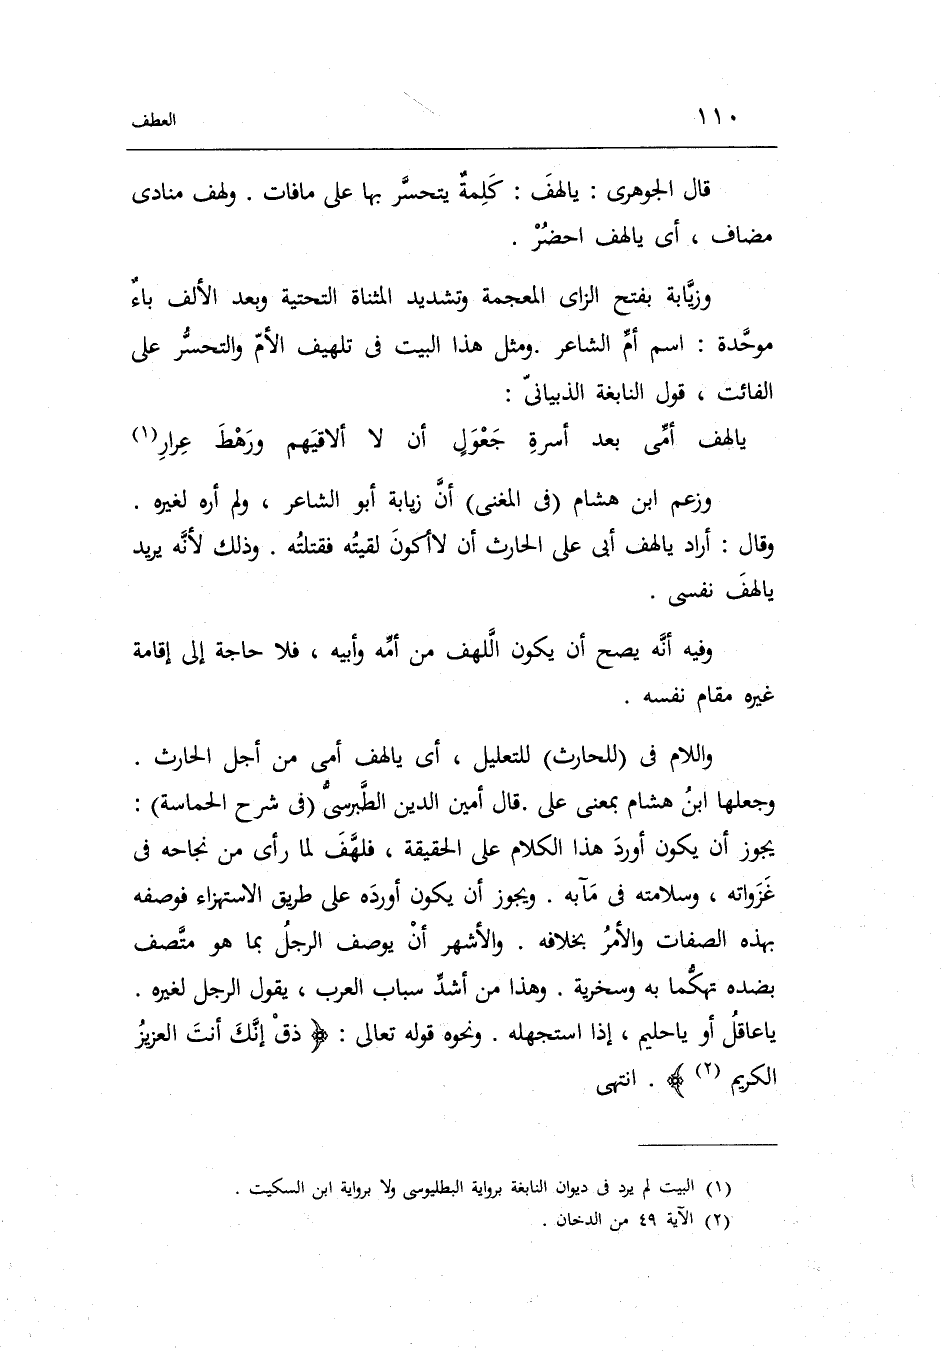 ١١٠ العطف
قال الجوهرى : يالهفَ : كَلِمةٌ يتحسَّر بها على مافات . ولهف منادى
مضاف ، أى يالهف احضُرْ .
وزيَّابة بفتح الزاى المعجمة وتشديد المثناة التحتية وبعد الألف باءٌ
موحَّدة : اسم أمِّ الشاعر .ومثل هذا البيت فى تلهيف الأمّ والتحسُّر على
الفائت ، قول النابغة الذبيانىّ :
يالهف أمِّى بعد أسرةِ جَعْوَلٍ أن لا ألاقيَهم ورَهْطَ عِرارِ(١)
وزعم ابن هشام (فى المغنى) أنَّ زيابة أبو الشاعر ، ولم أره لغيره .
وقال : أراد يالهف أبى على الحارث أن لاأكونَ لقيتُه فقتلتُه . وذلك لأنَّه يريد
يالهفَ نفسى .
وفيه أنَّه يصح أن يكون الَّلهف من أمِّه وأبيه ، فلا حاجة إلى إقامة
غيره مقام نفسه .
واللام فى (للحارث) للتعليل ، أى يالهف أمى من أجل الحارث .
وجعلها ابنُ هشام بمعنى على .قال أمين الدين الطَّبرسىُّ (فى شرح الحماسة) :
يجوز أن يكون أوردَ هذا الكلام على الحقيقة ، فلهَّفَ لما رأى من نجاحه فى
غَزَواته ، وسلامته فى مَآبه . ويجوز أن يكون أوردَه على طريق الاستهزاء فوصفه
بهذه الصفات والأمرُ بخلافه . والأشهر أنْ يوصف الرجلُ بما هو متَّصف
بضده تهكُّما به وسخرية . وهذا من أشدِّ سباب العرب ، يقول الرجل لغيره .
ياعاقلُ أو ياحليم ، إذا استجهله . ونحوه قوله تعالى : ﴿ ذقْ إنَّكَ أنتَ العزيزُ
الكريم (٢) ﴾ . انتهى
(١) البيت لم يرد فى ديوان النابغة برواية البطليوسى ولا برواية ابن السكيت .
(٢) الآية ٤٩ من الدخان .